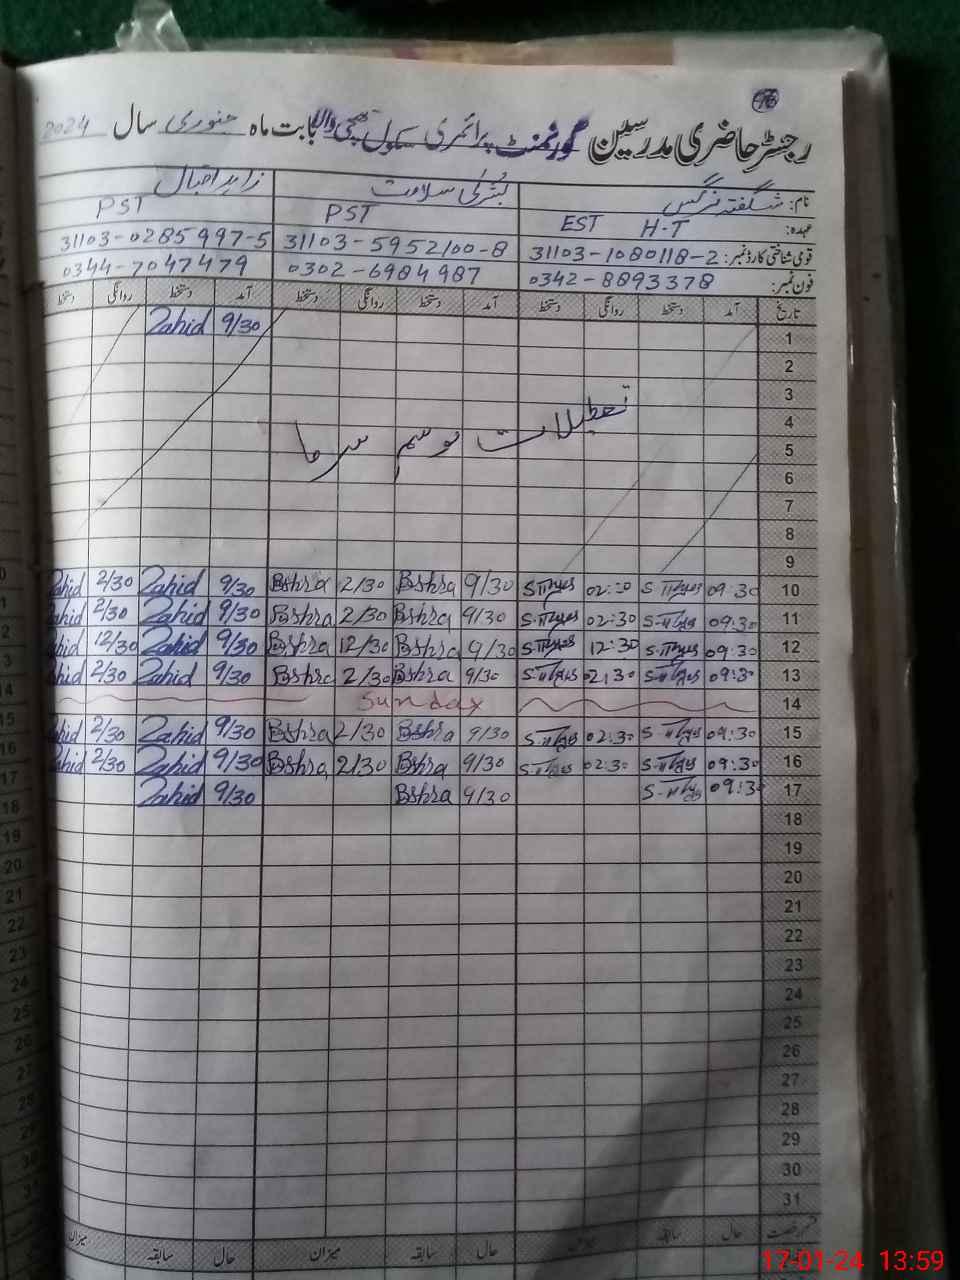 رجسٹر حاضری مدرسین گورنمنٹ پرائمری سکول بابت ماہ جنوری سال 2024
نام: شگفتہ نرگس بشریٰ سلامت زاہد اقبال
عہدہ: H-T EST PST PST
قومی شناختی کارڈ نمبر: 31103-1080118-2 31103-5952100-8 31103-0285997-5
فون نمبر: 0342-8893378 0302-6984987 0344-7047479
تاریخ آمد دستخط روانگی دستخط آمد دستخط روانگی دستخط آمد دستخط روانگی دستخط
1 9/30 Zahid
2
3
تعطیلات موسم سرما
4
5
6
7
8
9
10 09:30 02:30 9/30 Bshra 2/30 Bshra 9/30 Zahid 2/30 Zahid
11 09:30 02:30 9/30 Bshra 2/30 Bshra 9/30 Zahid 2/30 Zahid
12 09:30 12:30 9/30 Bshra 12/30 Bshra 9/30 Zahid 12/30 Zahid
13 09:30 02:30 9/30 Bshra 2/30 Bshra 9/30 Zahid 2/30 Zahid
14 Sunday
15 09:30 02:30 9/30 Bshra 2/30 Bshra 9/30 Zahid 2/30 Zahid
16 09:30 02:30 9/30 Bshra 2/30 Bshra 9/30 Zahid 2/30 Zahid
17 09:30 9/30 Bshra 9/30 Zahid
18
19
20
21
22
23
24
25
26
27
28
29
30
31
حال سابقہ میزان حال سابقہ میزان حال سابقہ میزان
17-01-24 13:59